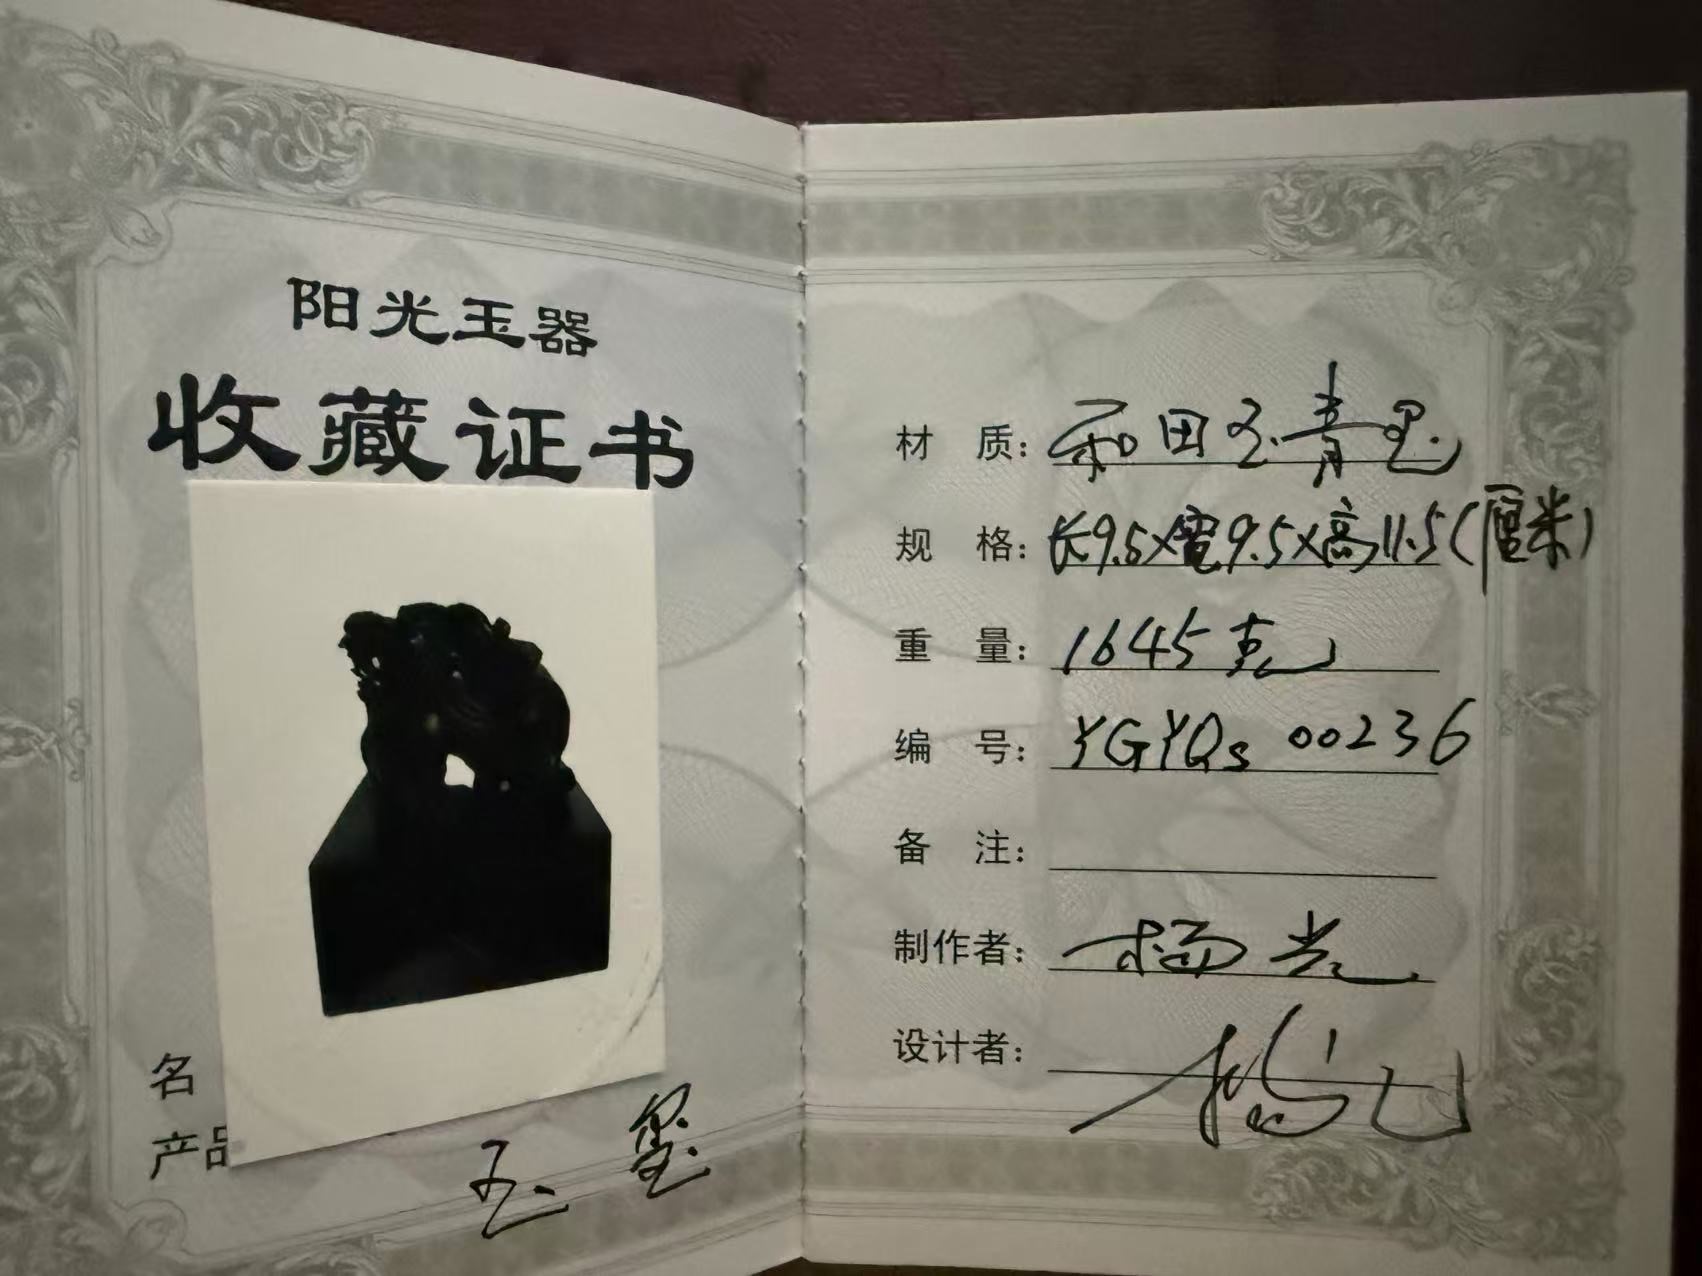 阳光玉器
收藏证书
名
产品
玉玺
材 质: 和田玉青玉
规 格: 长9.5×宽9.5×高11.5(厘米)
重 量: 1645克
编 号: YGYQs 00236
备 注:
制作者: 杨光
设计者: